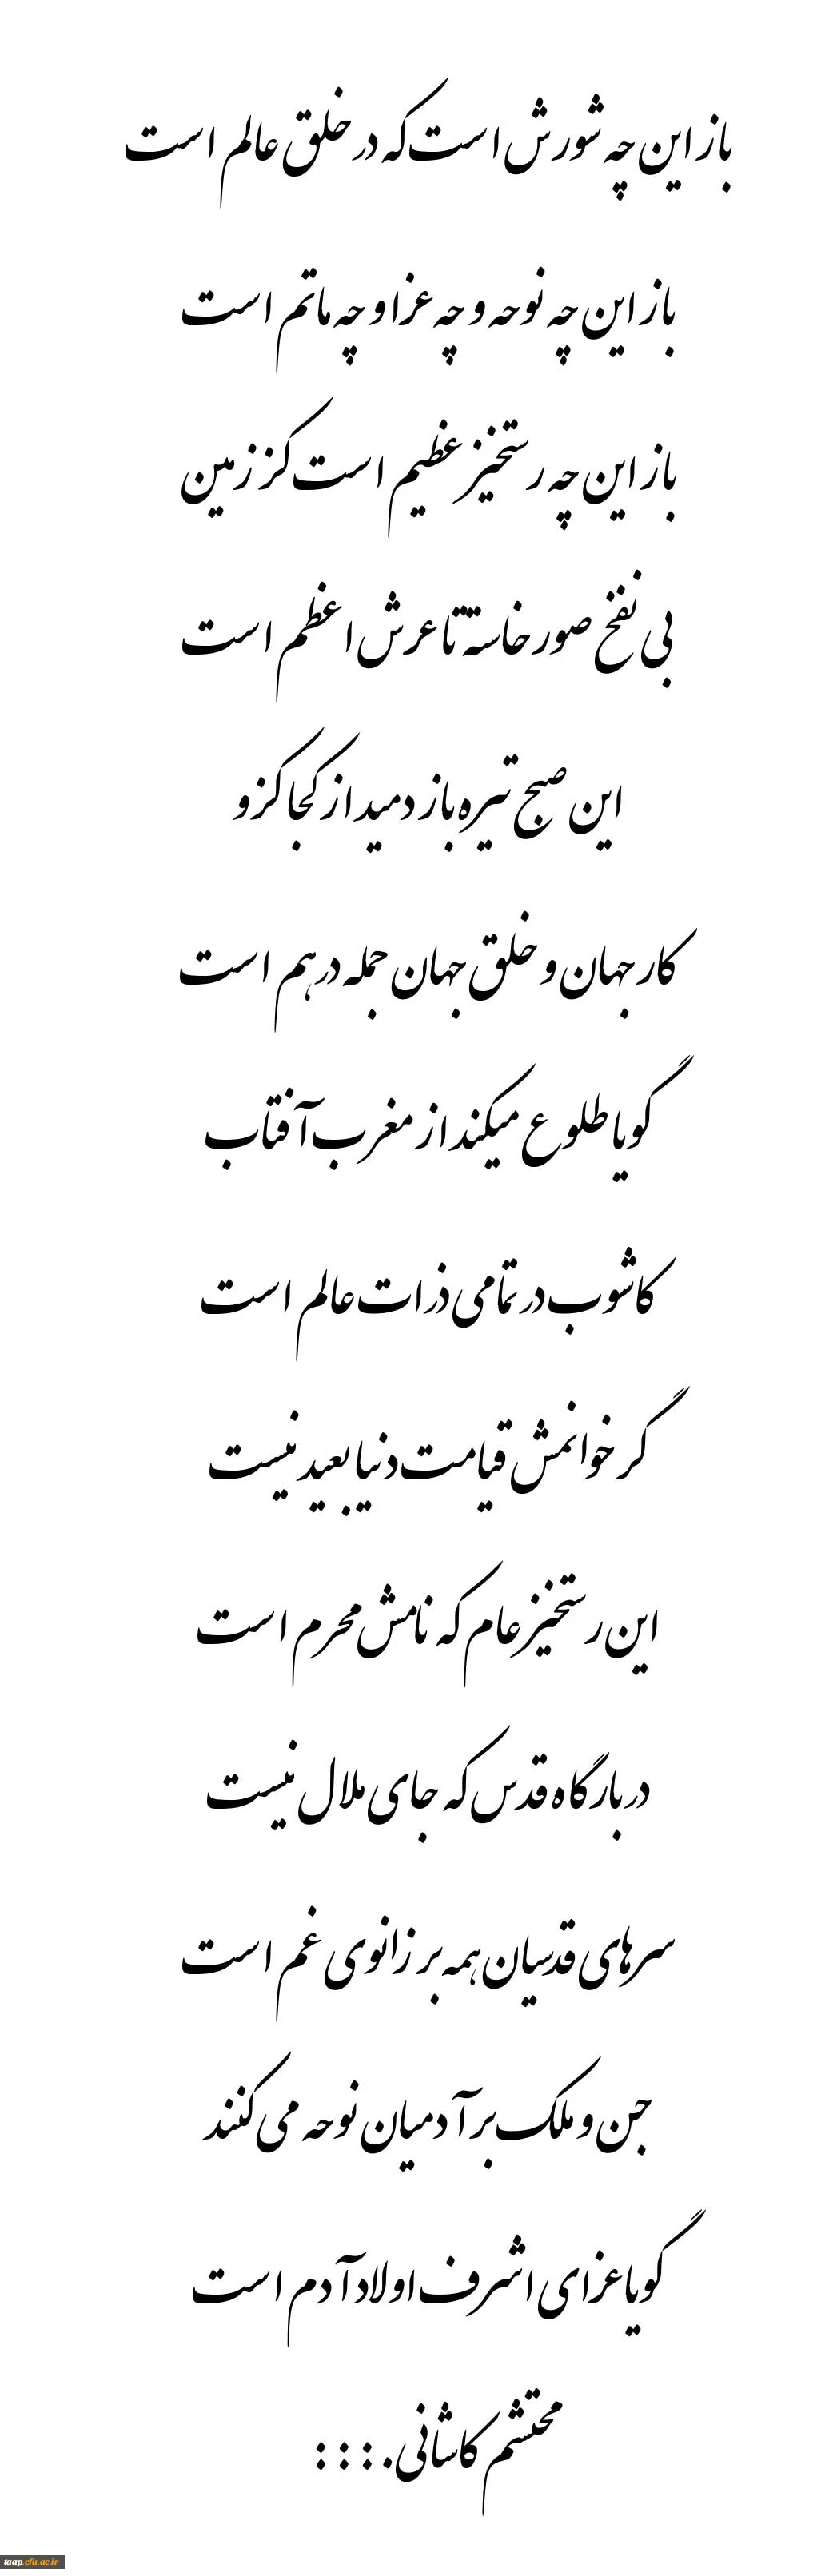 باز این چه شورش است که در خلق عالم است
باز این چه نوحه و چه عزا و چه ماتم است
باز این چه رستخیز عظیم است کز زمین
بی نفخ صور خاسته تا عرش اعظم است
این صبح تیره باز دمید از کجا کزو
کار جهان و خلق جهان جمله در هم است
گویا طلوع میکند از مغرب آفتاب
کاشوب در تمامی ذرات عالم است
گر خوانمش قیامت دنیا بعید نیست
این رستخیز عام که نامش محرم است
در بارگاه قدس که جای ملال نیست
سرهای قدسیان همه بر زانوی غم است
جن و ملک بر آدمیان نوحه می کنند
گویا عزای اشرف اولاد آدم است
محتشم کاشانی.:::
taap.cfu.ac.ir